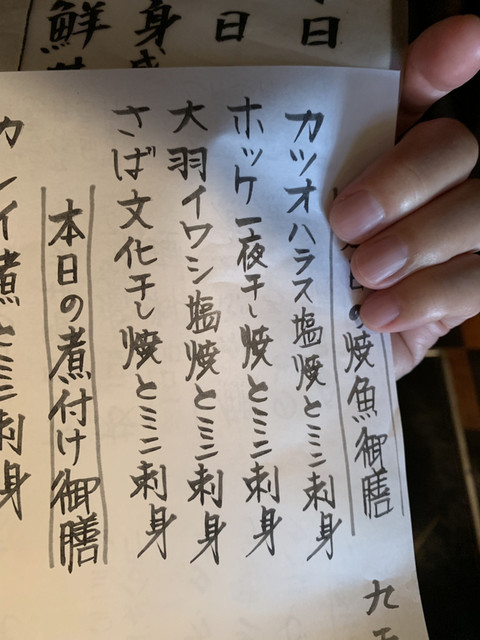 日の焼魚御膳
カツオハラス塩焼とミニ刺身
ホッケ一夜干し焼とミニ刺身
大羽イワシ塩焼とミニ刺身
さば文化干し焼とミニ刺身
本日の煮付け御膳
カレイ煮とミニ刺身
九
日
日
身
鮮